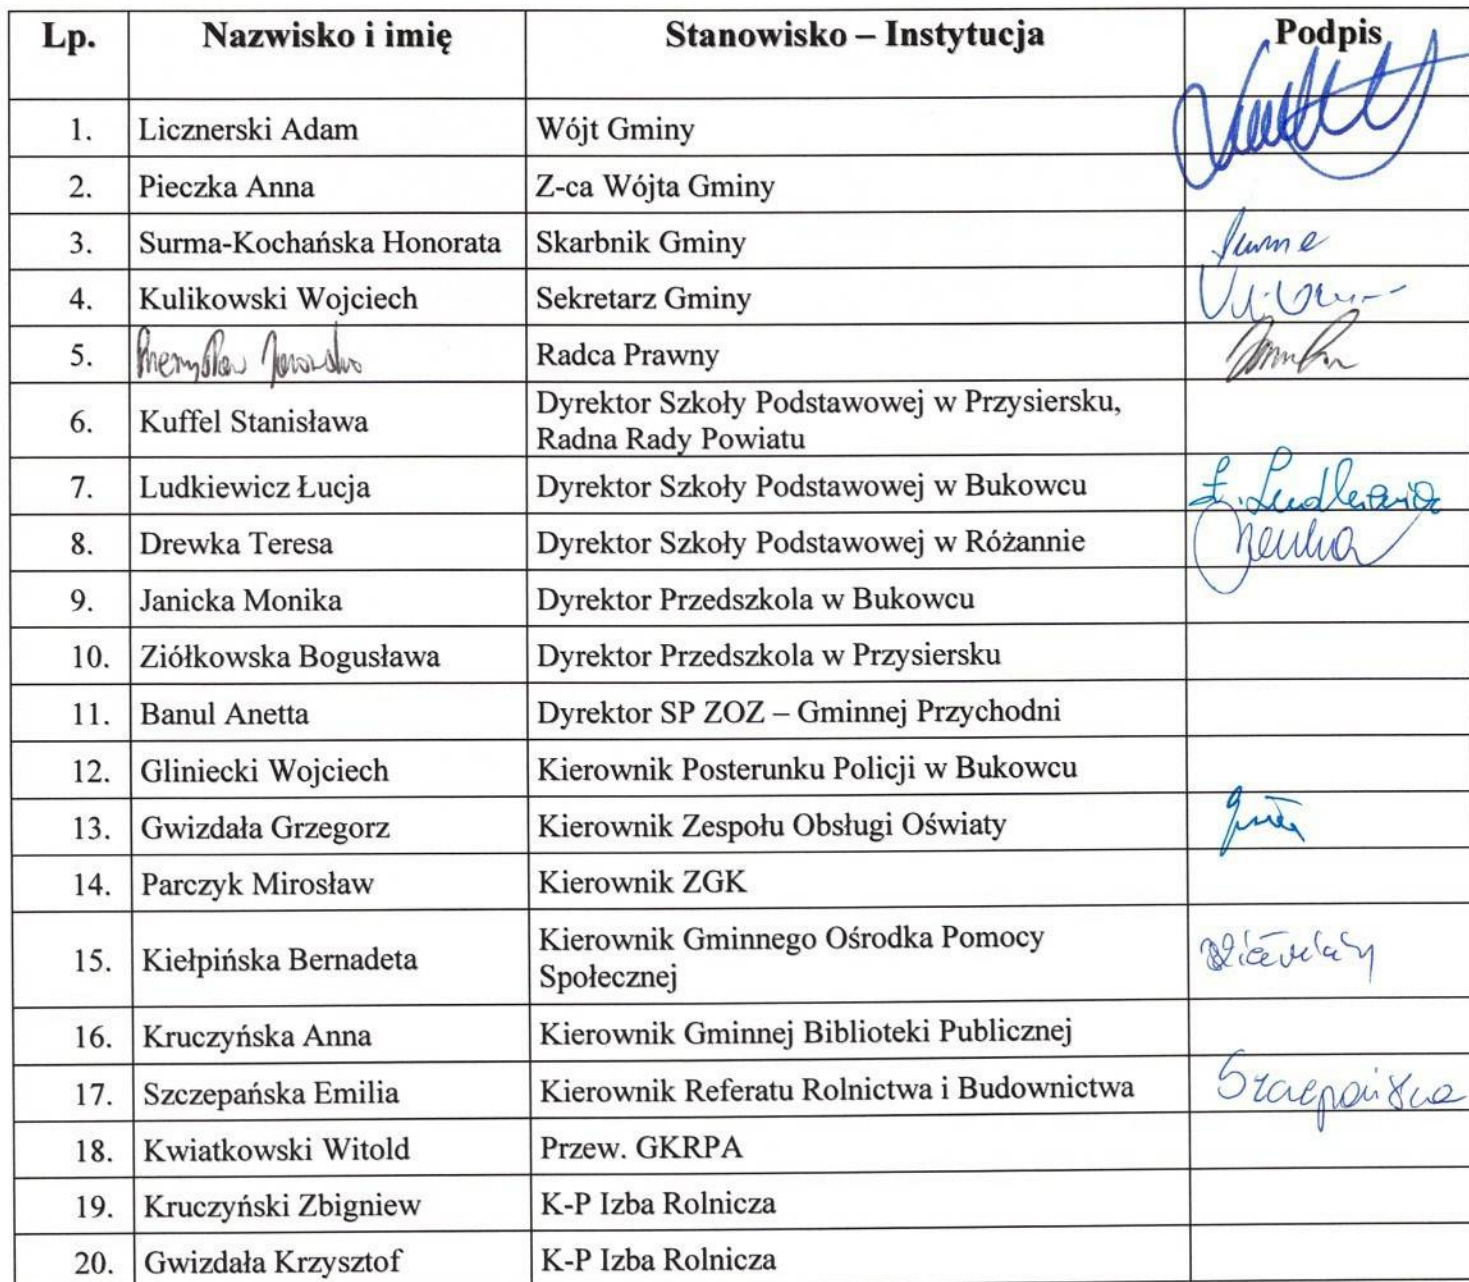 Lp. Nazwisko i imię Stanowisko – Instytucja Podpis
1. Licznerski Adam Wójt Gminy
2. Pieczka Anna Z-ca Wójta Gminy
3. Surma-Kochańska Honorata Skarbnik Gminy
4. Kulikowski Wojciech Sekretarz Gminy
5. Przemysław Radca Prawny
6. Kuffel Stanisława Dyrektor Szkoły Podstawowej w Przysiersku,
Radna Rady Powiatu
7. Ludkiewicz Łucja Dyrektor Szkoły Podstawowej w Bukowcu Ł. Ludkiewicz
8. Drewka Teresa Dyrektor Szkoły Podstawowej w Różannie
9. Janicka Monika Dyrektor Przedszkola w Bukowcu
10. Ziółkowska Bogusława Dyrektor Przedszkola w Przysiersku
11. Banul Anetta Dyrektor SP ZOZ – Gminnej Przychodni
12. Gliniecki Wojciech Kierownik Posterunku Policji w Bukowcu
13. Gwizdała Grzegorz Kierownik Zespołu Obsługi Oświaty
14. Parczyk Mirosław Kierownik ZGK
15. Kiełpińska Bernadeta Kierownik Gminnego Ośrodka Pomocy
Społecznej
16. Kruczyńska Anna Kierownik Gminnej Biblioteki Publicznej
17. Szczepańska Emilia Kierownik Referatu Rolnictwa i Budownictwa Szczepańska
18. Kwiatkowski Witold Przew. GKRPA
19. Kruczyński Zbigniew K-P Izba Rolnicza
20. Gwizdała Krzysztof K-P Izba Rolnicza